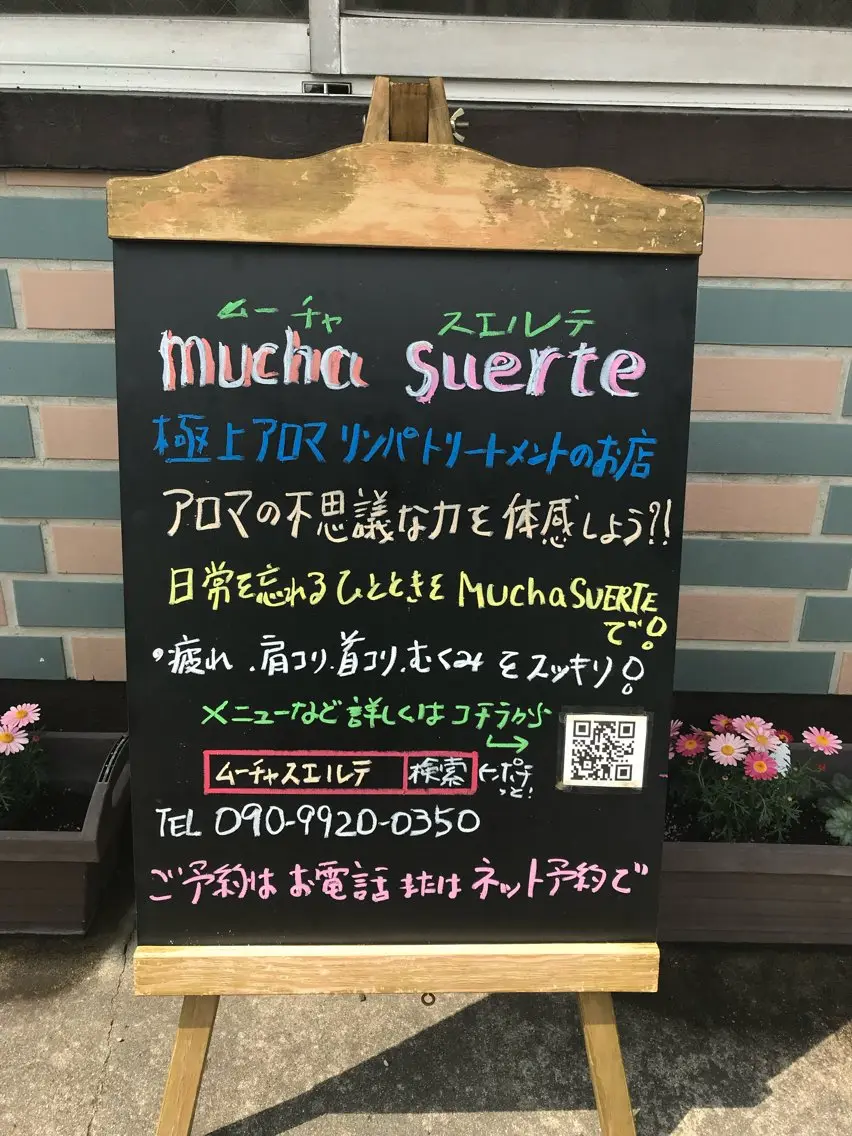 ムーチャ スエルテ
mucha suerte
極上アロマリンパトリートメントのお店
アロマの不思議な力を体感しよう?!
日常を忘れるひとときを MUchaSUERTE
で!
・疲れ.肩コリ.首コリ.むくみをスッキリ!
メニューなど詳しくはコチラから
ムーチャスエルテ 検索 ←ポチ
っと!
TEL 090-9920-0350
ご予約はお電話またはネット予約で